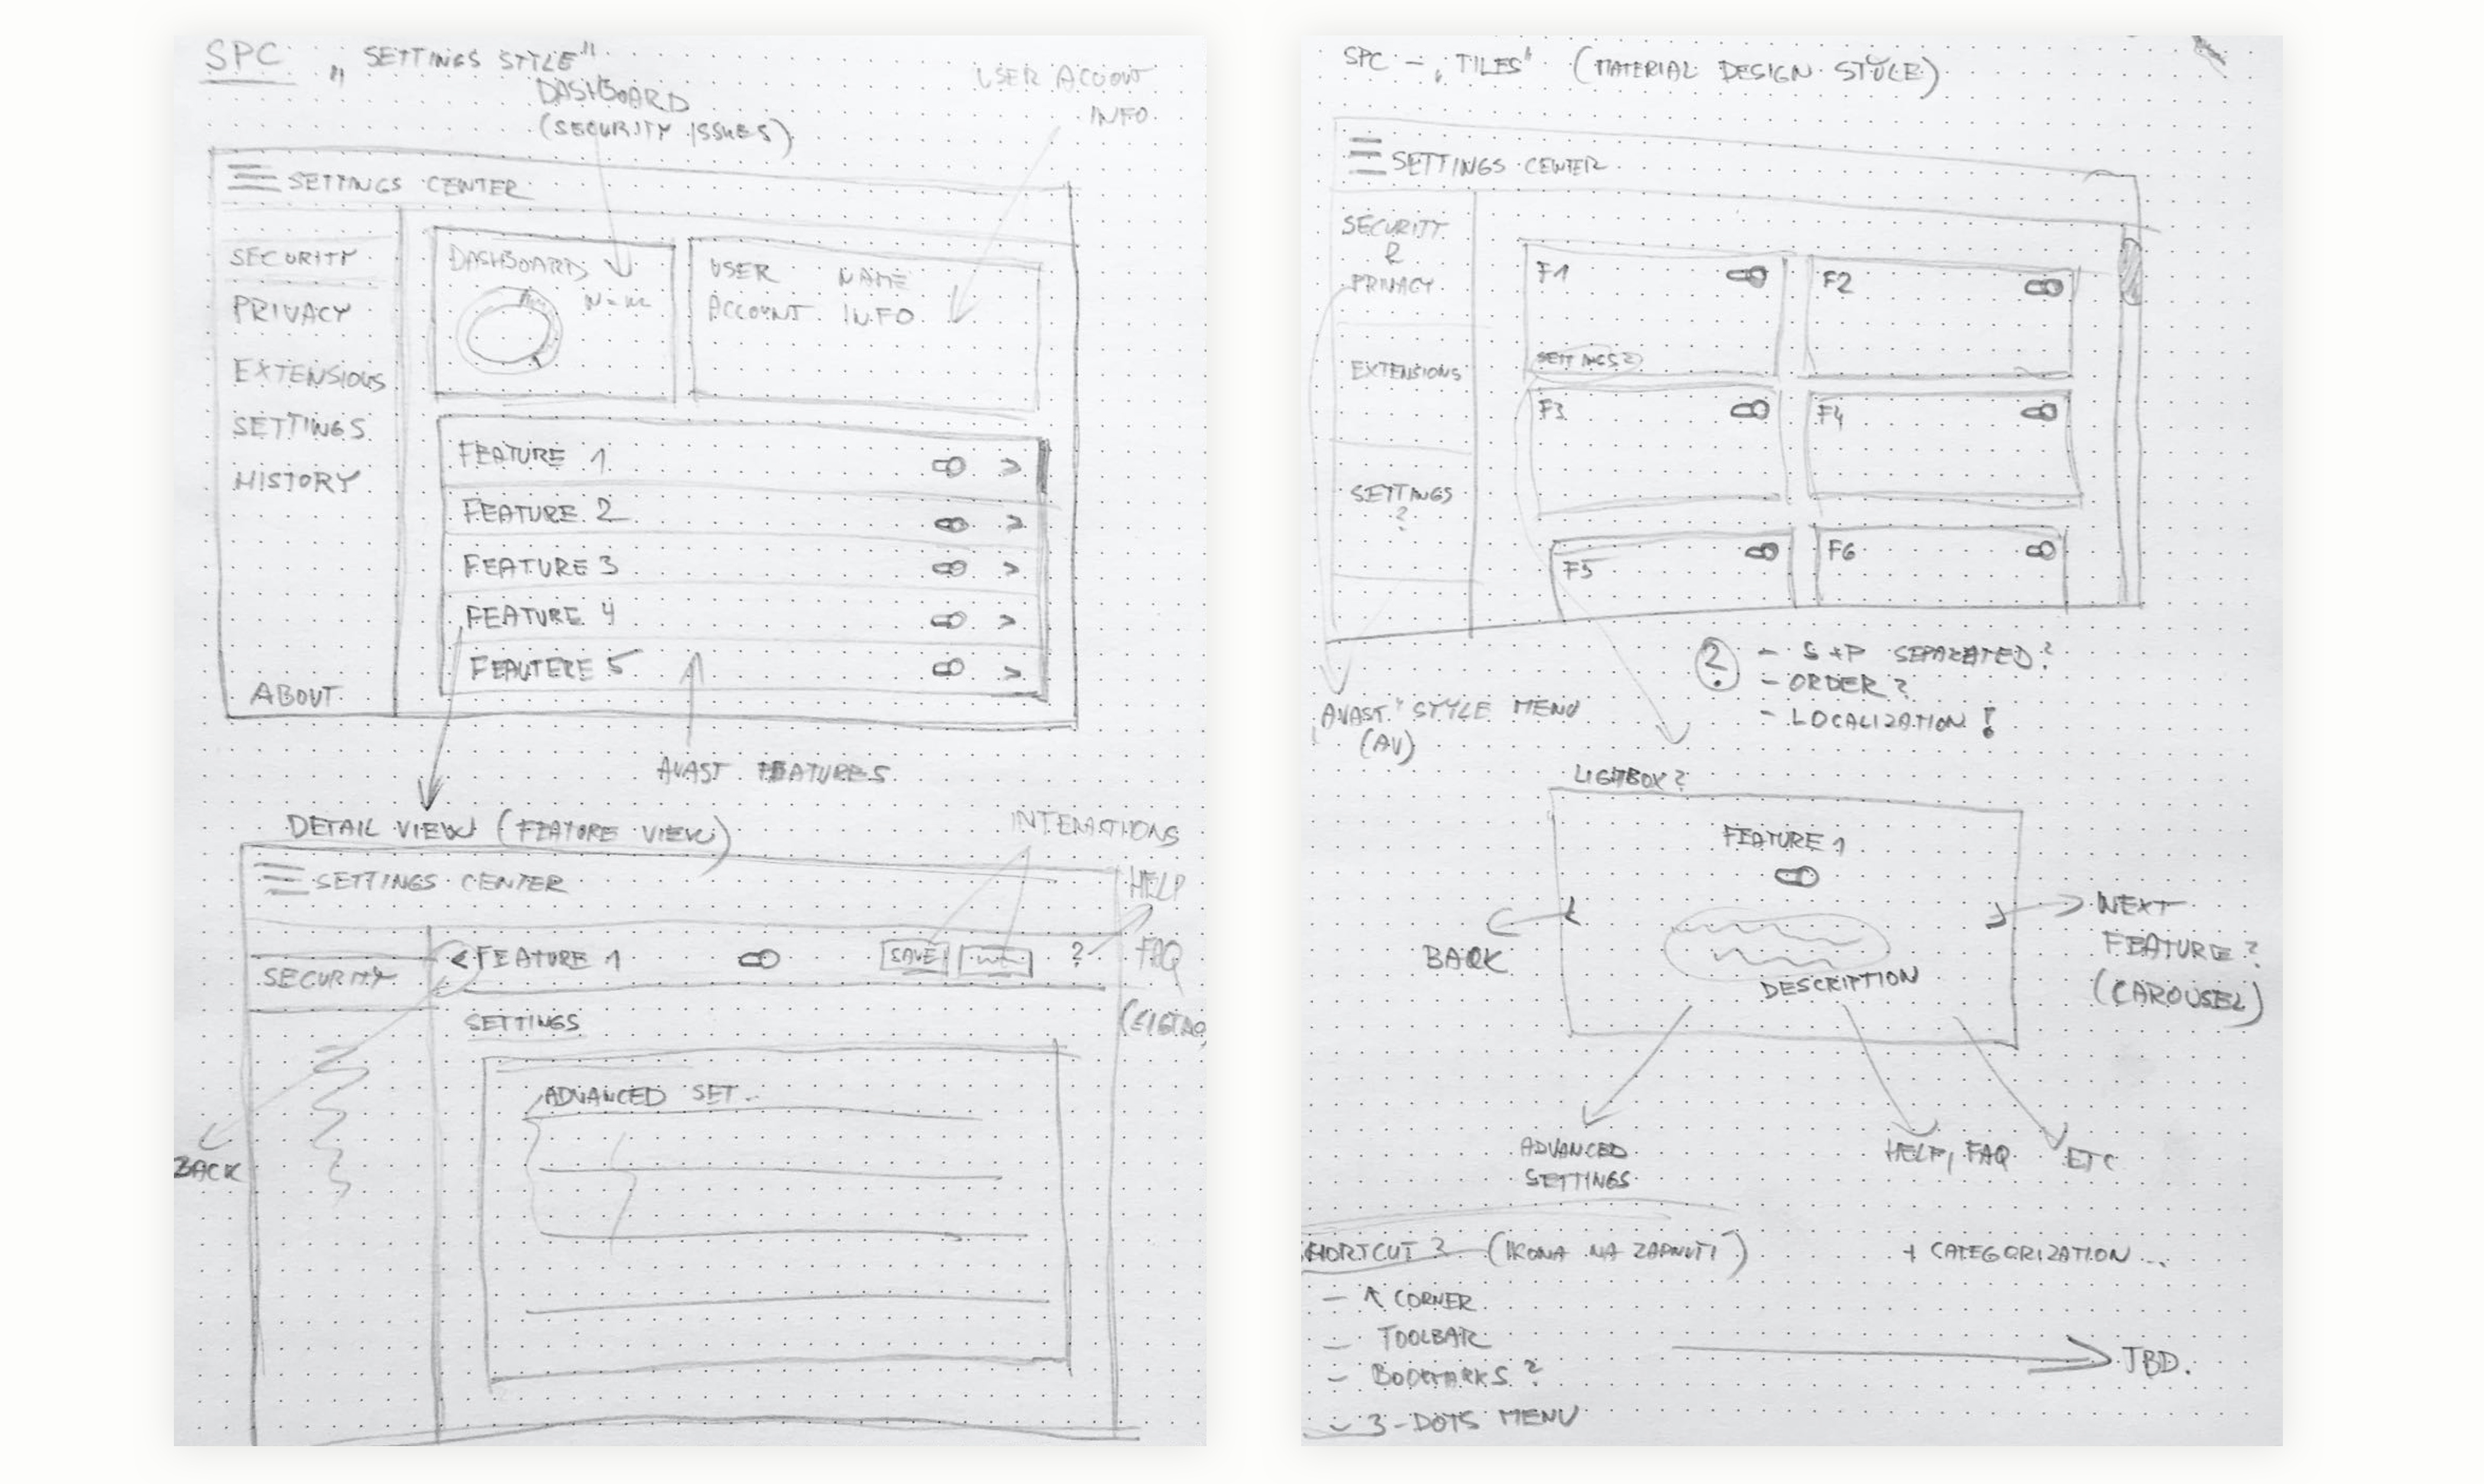 SPC „SETTINGS STYLE"
DASHBOARD
(SECURITY ISSUES)
USER ACCOUNT
INFO
SETTINGS CENTER
SECURITY
PRIVACY
EXTENSIONS
SETTINGS
HISTORY
ABOUT
DASHBOARD
USER NAME
ACCOUNT INFO
FEATURE 1 >
FEATURE 2 >
FEATURE 3 >
FEATURE 4 >
FEAUTERE 5 >
AVAST FEATURES
DETAIL VIEW (FEATURE VIEW)
INTERACTIONS
SETTINGS CENTER
HELP
FAQ
SECURITY
< FEATURE 1 SAVE ?
SETTINGS
ADVANCED SET..
BACK
SPC - „TILES" (MATERIAL DESIGN STYLE)
SETTINGS CENTER
SECURITY
&
PRIVACY
EXTENSIONS
SETTINGS
?
F1
SETTINGS?
F2
F3
F4
F5
F6
? - S+P SEPARATED?
- ORDER?
- LOCALIZATION!
AVAST" STYLE MENU
(AV)
LIGHTBOX?
FEATURE 1
DESCRIPTION
BACK
NEXT
FEATURE?
(CAROUSEL)
ADVANCED
SETTINGS
HELP, FAQ
ETC
SHORTCUT? (IKONA NA ZAPNUTÍ)
+ CATEGORIZATION...
- CORNER
- TOOLBAR
- BOOKMARKS?
- 3-DOTS MENU
TBD.